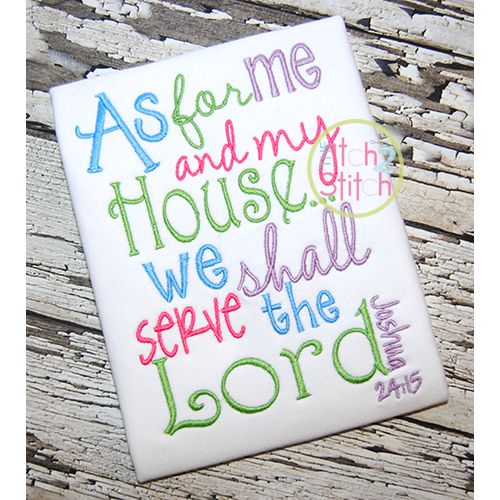 As for me
and my
House...
we shall
serve the
Lord
Joshua
24:15
the
itch 2
Stitch